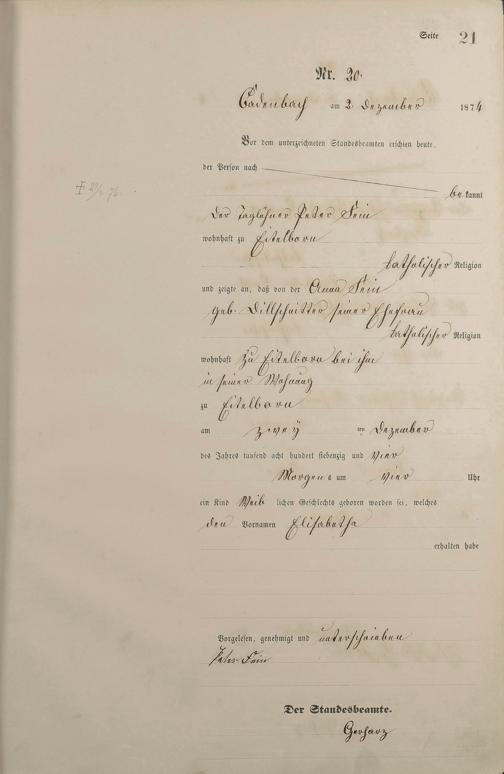 Seite 21
Nr. 20.
Cadenbach am 2. Dezember 1874
Vor dem unterzeichneten Standesbeamten erschien heute,
der Person nach
be kannt
der Taglöhner Peter Fein
wohnhaft zu Eitelborn
katholischer Religion
und zeigte an, daß von der Anna Fein
geb. Dillschnitter seiner Ehefrau
katholischer Religion
wohnhaft zu Eitelborn bei ihm
in seiner Wohnung
zu Eitelborn
am zwey ten Dezember
des Jahres tausend acht hundert siebenzig und vier
Morgens um vier Uhr
ein Kind Weib lichen Geschlechts geboren worden sei, welches
den Vornamen Elisabetha
erhalten habe
Vorgelesen, genehmigt und unterschrieben
Peter Fein
Der Standesbeamte.
Gerharz